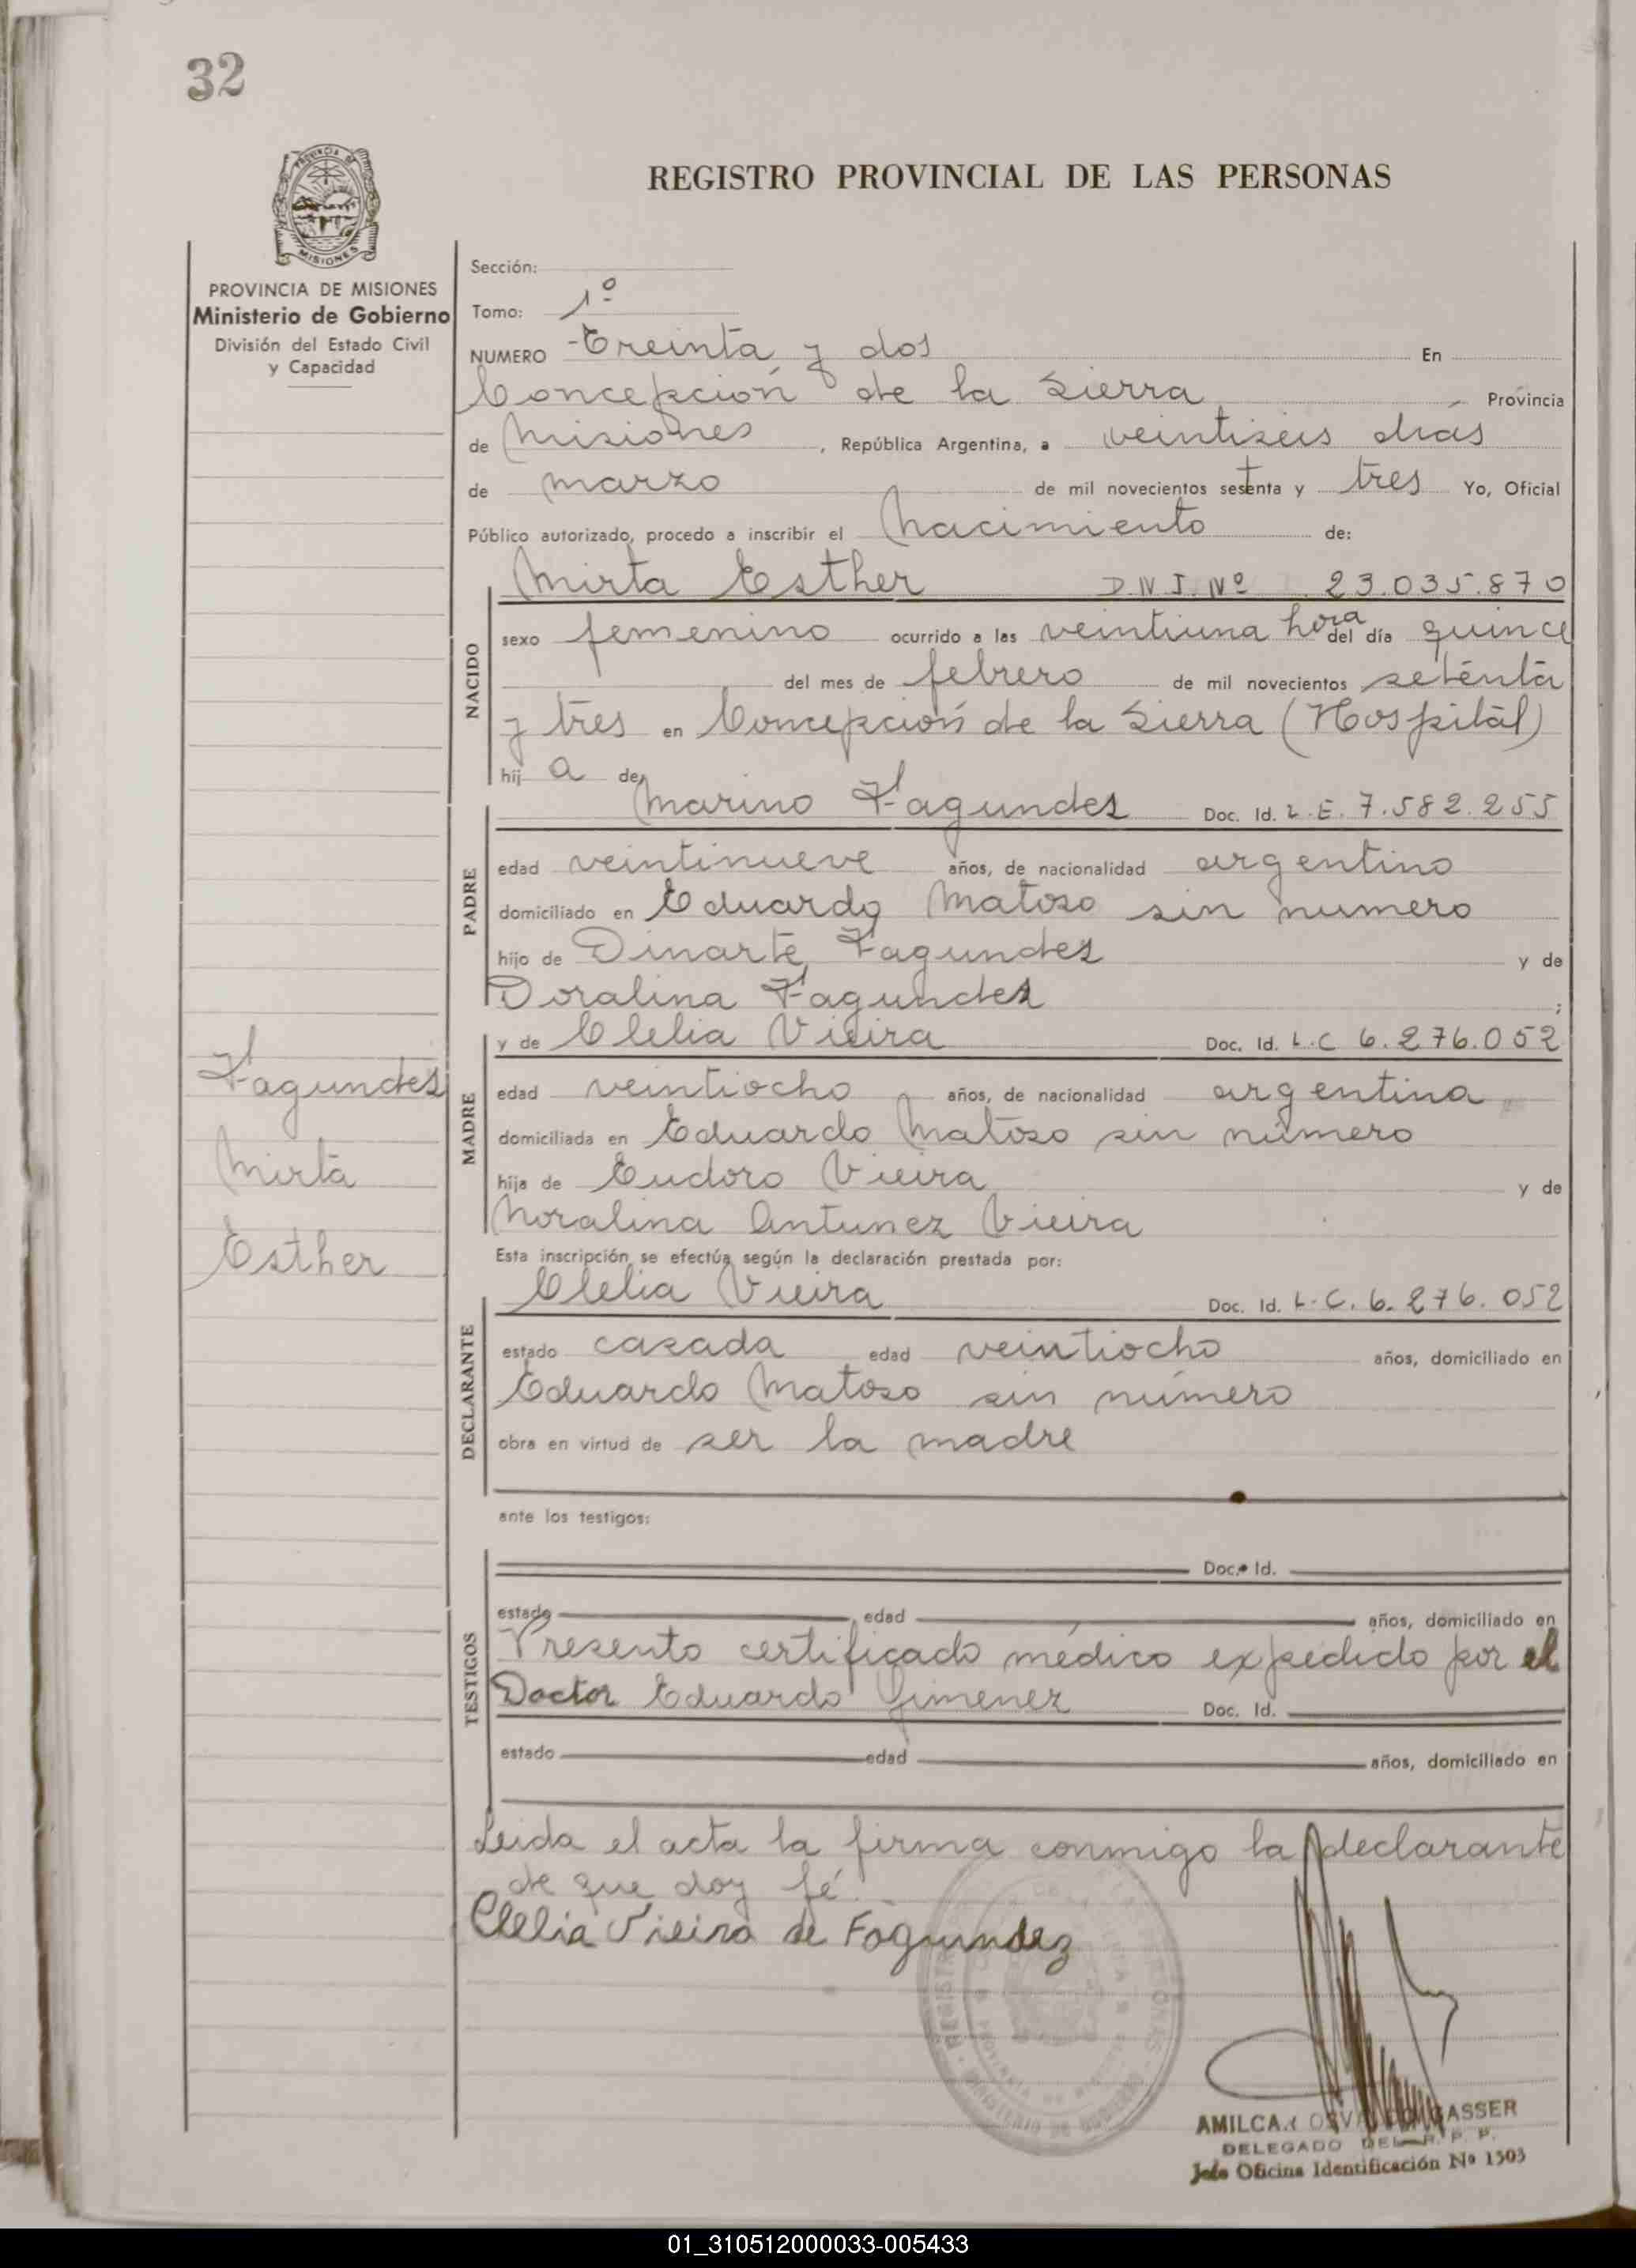 32
REGISTRO PROVINCIAL DE LAS PERSONAS
MISIONES
PROVINCIA DE MISIONES
Ministerio de Gobierno
División del Estado Civil
y Capacidad
Sección:
Tomo: 1º
NUMERO Treinta y dos En
Concepción de la Sierra, Provincia
de Misiones, República Argentina, a veintiseis dias
de marzo de mil novecientos setenta y tres Yo, Oficial
Público autorizado, procedo a inscribir el Nacimiento de:
Mirta Esther D.N.I. Nº 23.035.870
NACIDO
sexo femenino ocurrido a las veintiuna hora del día quince
del mes de febrero de mil novecientos setenta
y tres en Concepción de la Sierra (Hospital)
hij a de
Marino Fagundes Doc. Id. L.E. 7.582.255
PADRE
edad veintinueve años, de nacionalidad argentino
domiciliado en Eduardo Matoso sin numero
hijo de Dinarte Fagundes y de
Doralina Fagundes ;
y de Clelia Vieira Doc. Id. L.C 6.276.052
MADRE
edad veintiocho años, de nacionalidad argentina
domiciliada en Eduardo Matoso sin número
hija de Eudoro Vieira y de
Noralina Antunez Vieira
Fagundes
Mirta
Esther
Esta inscripción se efectúa según la declaración prestada por:
Clelia Vieira Doc. Id. L.C. 6.276.052
DECLARANTE
estado casada edad veintiocho años, domiciliado en
Eduardo Matoso sin número
obra en virtud de ser la madre
ante los testigos:
Doc. Id.
TESTIGOS
estado edad años, domiciliado en
Presento certificado médico expedido por el
Doctor Eduardo Gimenez Doc. Id.
estado edad años, domiciliado en
Leida el acta la firma conmigo la declarante
de que doy fé.
Clelia Vieira de Fagundez
AMILCAR OSVALDO GASSER
DELEGADO DEL R. P. P.
Jefe Oficina Identificación Nº 1503
01_310512000033-005433